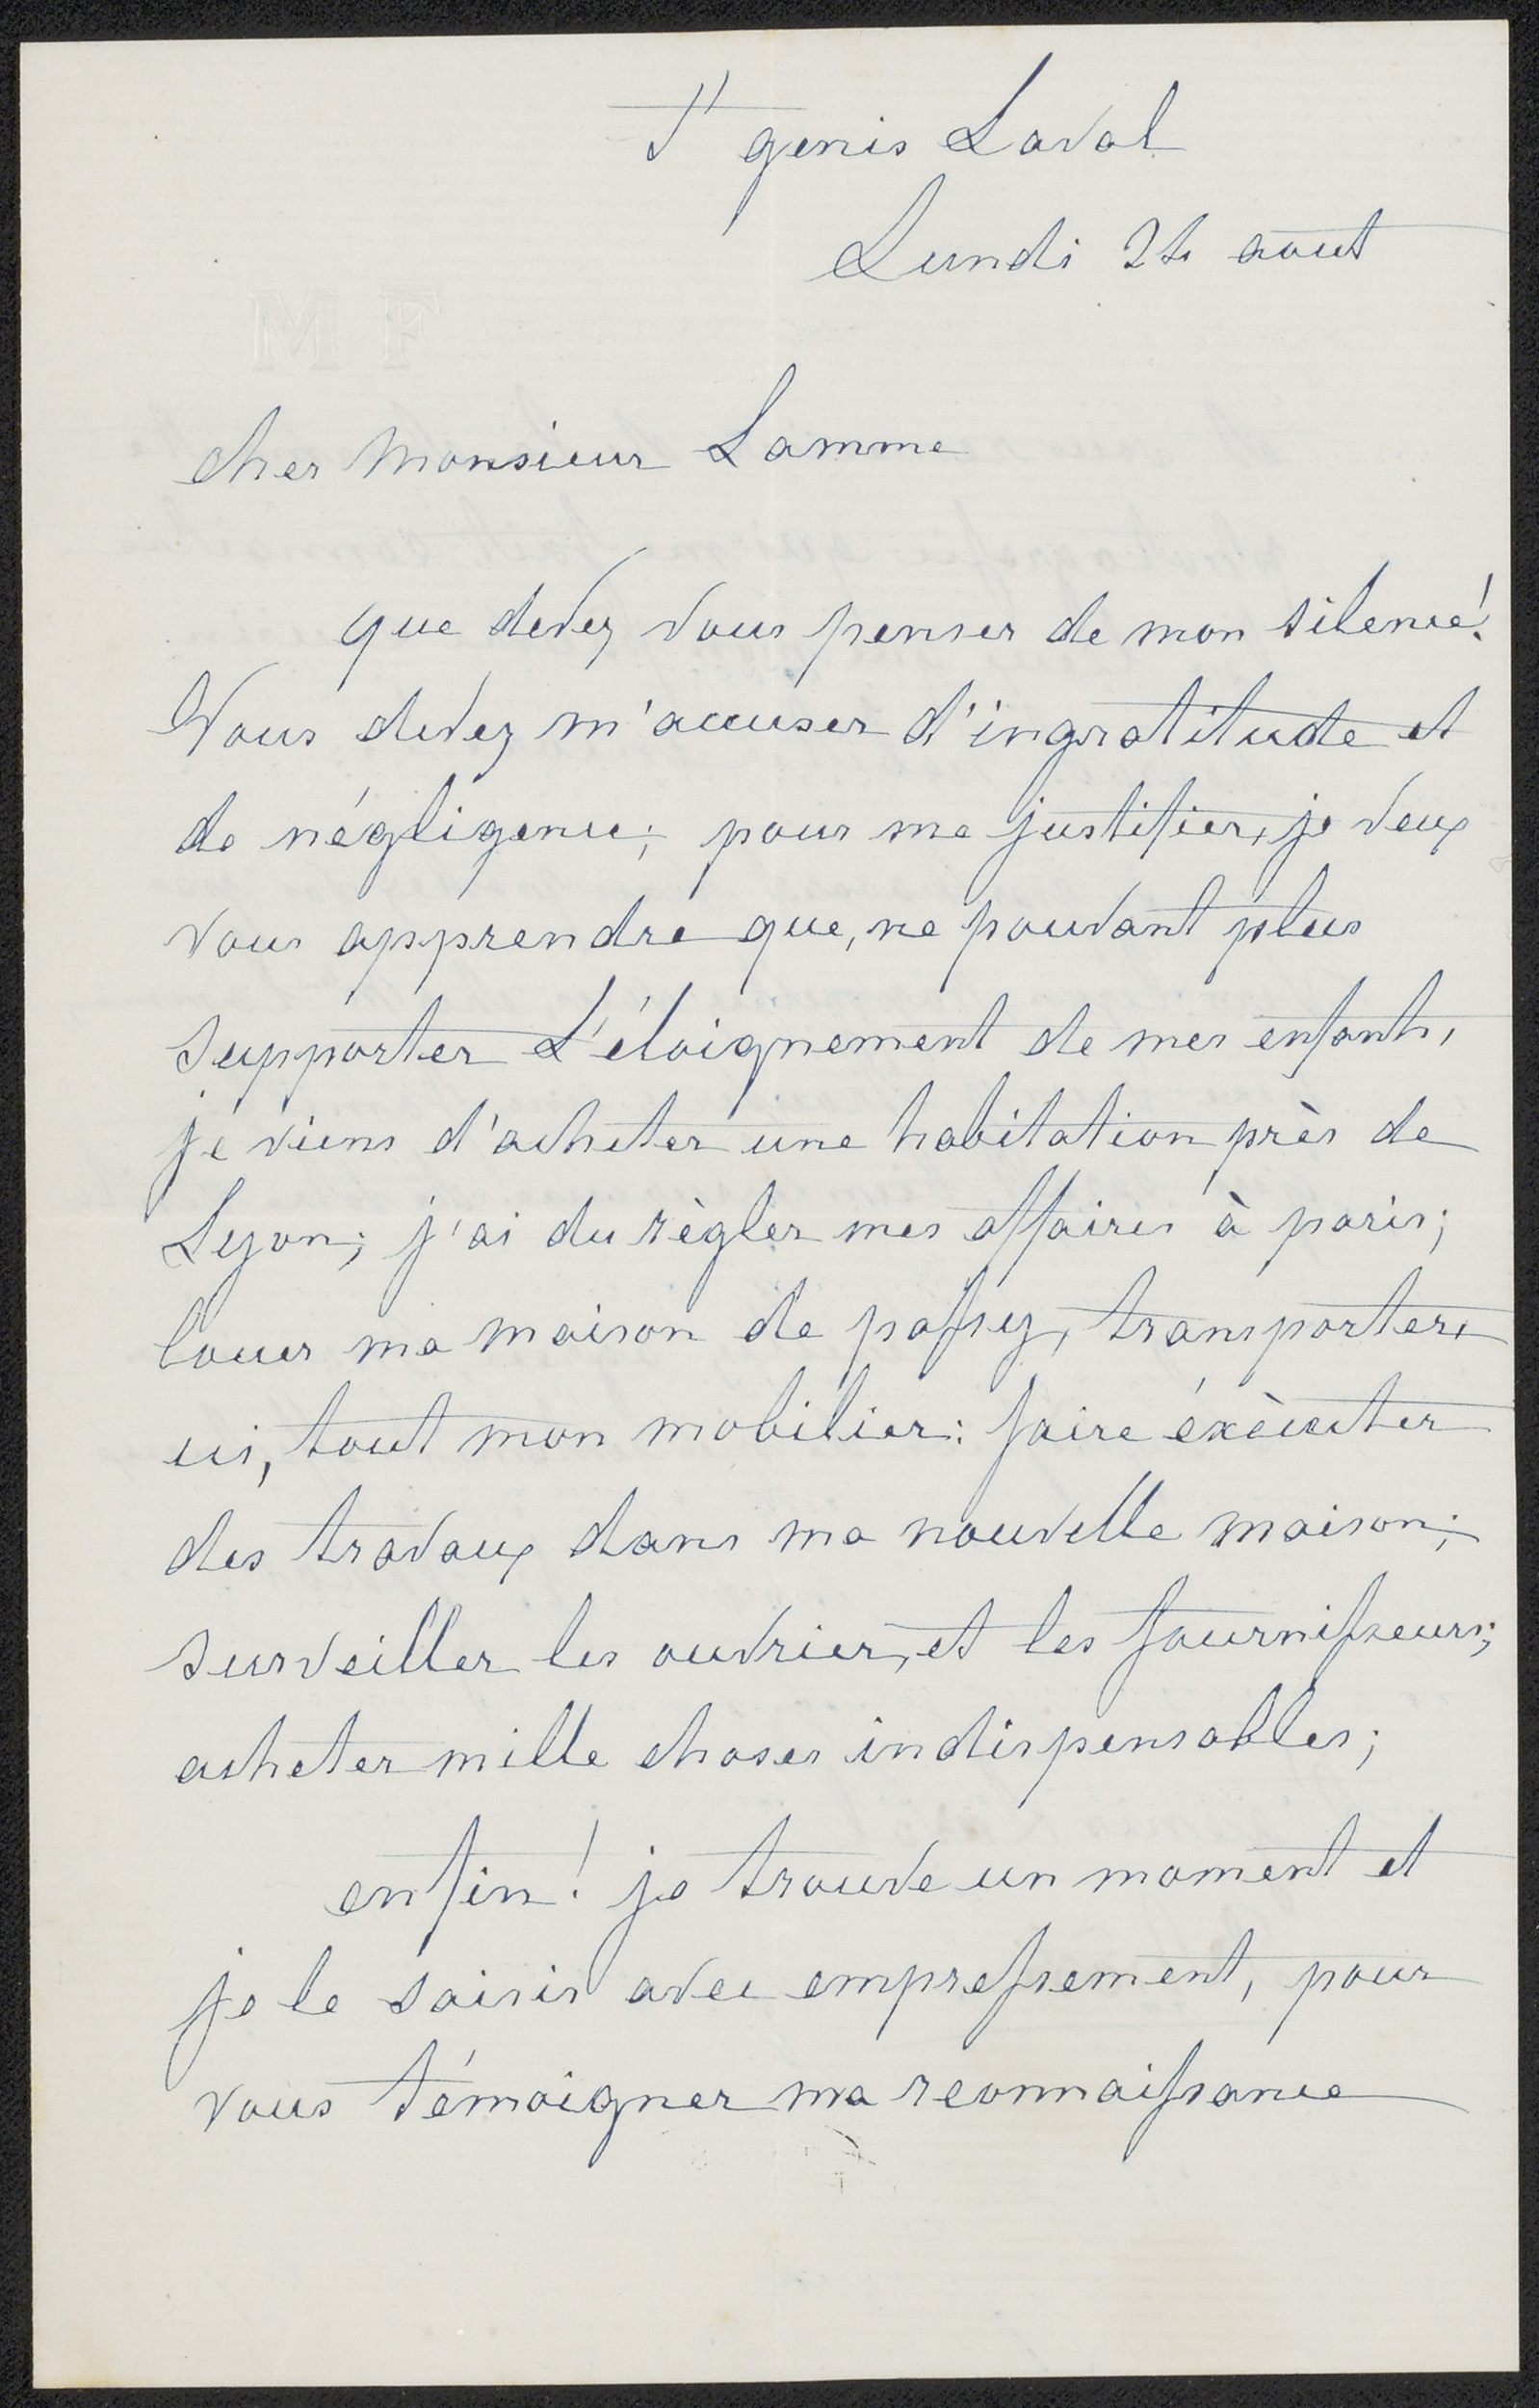 St genis Laval
Lundi 24 aout
M F
cher Monsieur Lamme
que devez vous penser de mon silence!
Vous devez m'accuser d'ingratitude et
de négligence; pour me justifier, je veux
vous apprendre que, ne pouvant plus
supporter L'éloignement de mes enfants,
je viens d'acheter une habitation près de
Lyon; j'ai du règler mes affaires à paris;
louer ma maison de passy, transporter,
ici, tout mon mobilier: faire éxècuter
des travaux dans ma nouvelle maison;
surveiller les ouvrier, et les fournisseurs;
acheter mille choses indispensables;
enfin! je trouve un moment et
je le saisis avec empressement, pour
vous témoigner ma reconnaissance